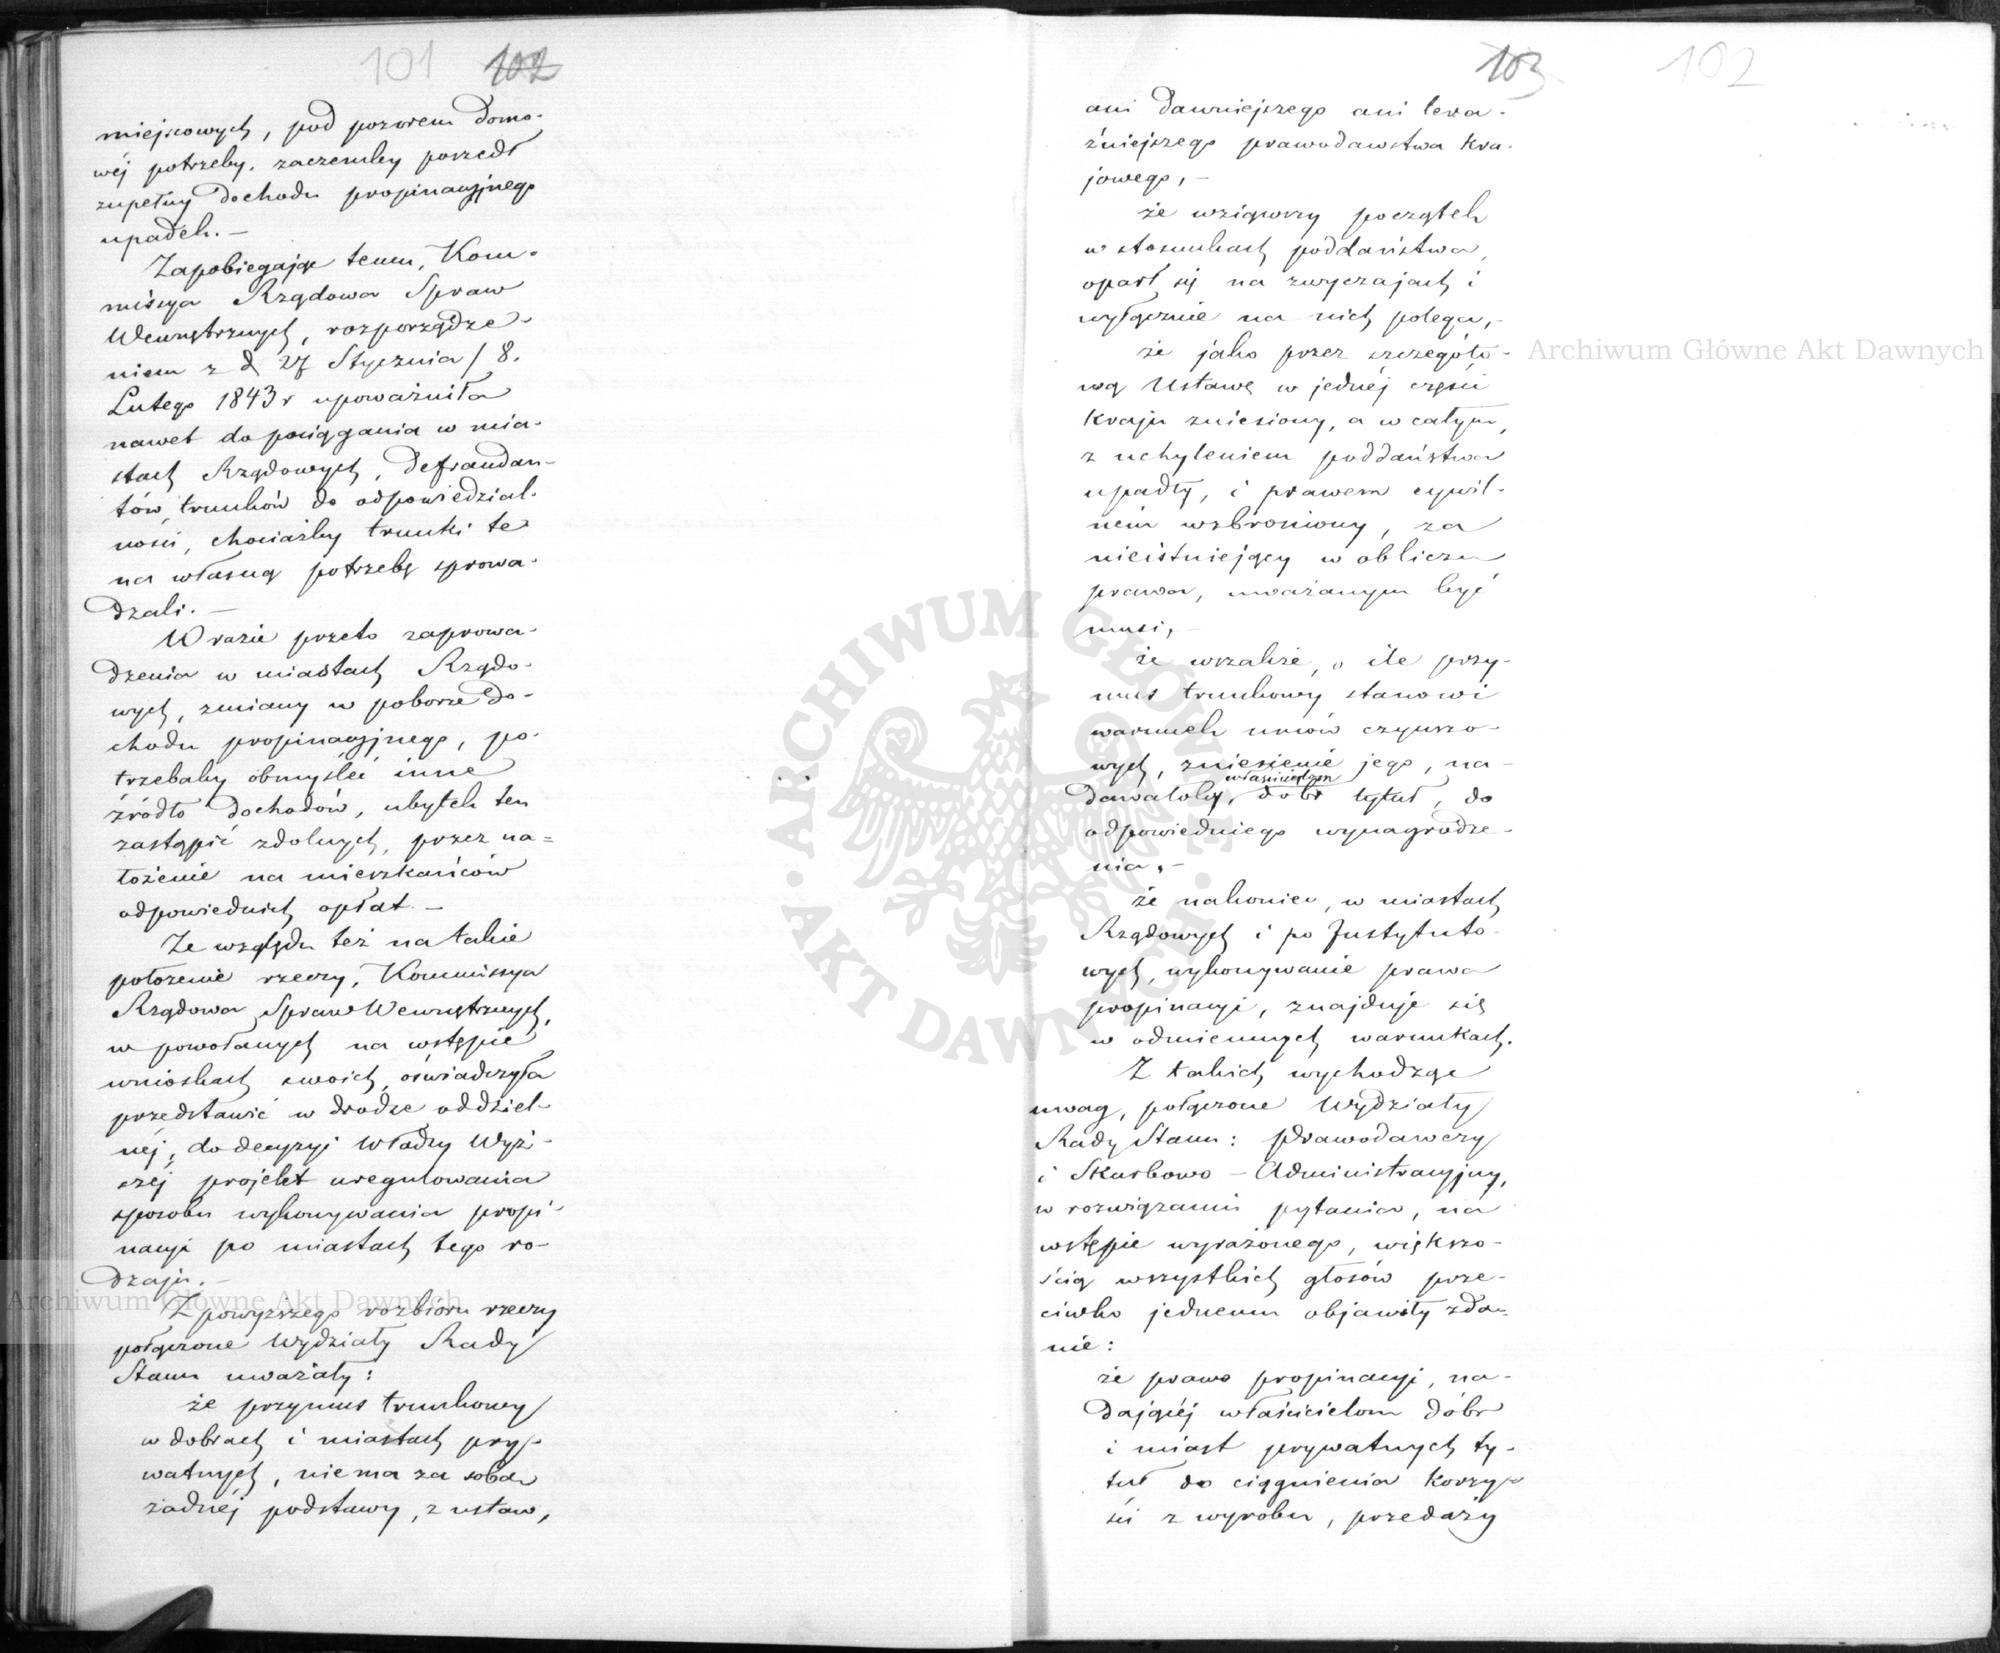 101 102
miejscowych, pod pozorem domo-
wéj potrzeby. zaczemby poszedł
zupełny dochodu propinacyjnego
upadek. —
Zapobiegając temu, Kom-
missya Rządowa Spraw
Wewnętrznych, rozporządze-
niem z d. 27 Stycznia / 8.
Lutego 1843 r upoważniła
nawet do pociągania w mia-
stach Rządowych, defraudan-
tów trunków do odpowiedzial-
ności, chociażby trunki te
na własną potrzebę sprowa-
dzali. —
W razie przeto zaprowa-
dzenia w miastach Rządo-
wych, zmiany w poborze do-
chodu propinacyjnego, po-
trzebaby obmyśleć inne
źródło dochodów, ubytek ten
zastąpić zdolnych, przez na=
łożenie na mieszkańców
odpowiednich opłat. —
Ze względu też na takie
położenie rzeczy, Kommissya
Rządowa Spraw Wewnętrznych,
w powołanych na wstępie
wnioskach swoich, oświadczyła
przedstawić w drodze oddziel-
néj, do decyzyi Władzy Wyż-
széj projekt uregulowania
sposobu wykonywania propi-
nacyi po miastach tego ro-
dzaju. —
Z powyższego rozbioru rzeczy
połączone Wydziały Rady
Stanu uważały:
że przymus trunkowy
w dobrach i miastach pry-
watnych, nie ma za sobą
żadnéj podstawy, z ustaw,
103 102
ani dawniejszego ani tera-
źniejszego prawodawstwa kra-
jowego, —
że wziąwszy początek
w stosunkach poddaństwa,
oparł się na zwyczajach i
wyłącznie na nich polega, —
że jako przez szczegóło-
wą Ustawę w jednéj części
kraju zniesiony, a w całym,
z uchyleniem poddaństwa
upadły, i prawem cywil-
ném wzbroniony, za
nieistniejący w obliczu
prawa, uważanym być
musi, —
że wszakże, o ile przy-
mus trunkowy stanowi
warunek umów czynszo-
wych, zniesienie jego, na-
dawałoby właścicielom dóbr tytuł, do
odpowiedniego wynagrodze-
nia, —
że nakoniec, w miastach
Rządowych i po Instytuto-
wych, wykonywanie prawa
propinacyi, znajduje się
w odmiennych warunkach.
Z takich wychodząc
uwag, połączone Wydziały
Rady Stanu: Prawodawczy
i Skarbowo – Administracyjny,
w rozwiązaniu pytania, na
wstępie wyrażonego, większo-
ścią wszystkich głosów prze-
ciwko jednemu objawiły zda-
nie:
że prawo propinacyi, na-
dającéj właścicielom dóbr
i miast prywatnych ty-
tuł do ciągnienia korzy-
ści z wyrobu, przedaży
Archiwum Główne Akt Dawnych
Archiwum Główne Akt Dawnych
ARCHIWUM GŁÓWNE AKT DAWNYCH